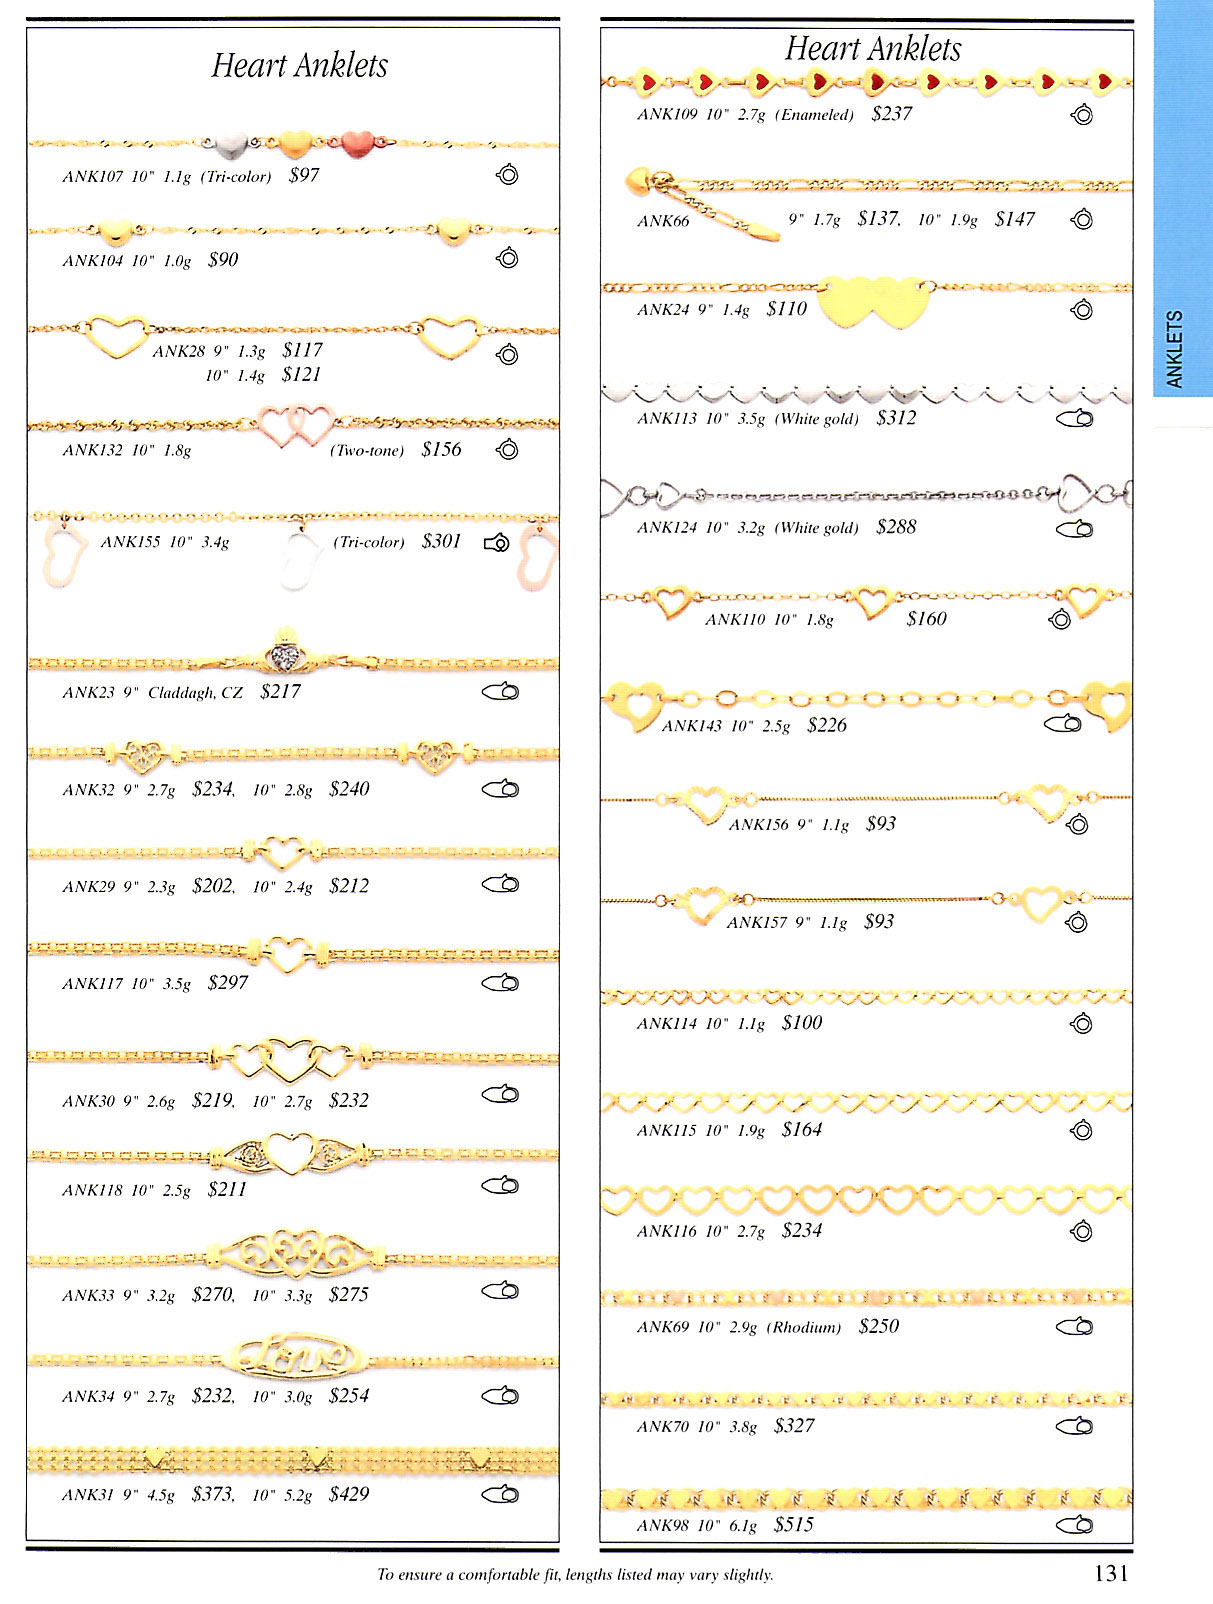 Heart Anklets
ANK107 10" 1.1g (Tri-color) $97
ANK104 10" 1.0g $90
ANK28 9" 1.3g $117
10" 1.4g $121
ANK132 10" 1.8g (Two-tone) $156
ANK155 10" 3.4g (Tri-color) $301
ANK23 9" Claddagh, CZ $217
ANK32 9" 2.7g $234, 10" 2.8g $240
ANK29 9" 2.3g $202, 10" 2.4g $212
ANK117 10" 3.5g $297
ANK30 9" 2.6g $219, 10" 2.7g $232
ANK118 10" 2.5g $211
ANK33 9" 3.2g $270, 10" 3.3g $275
Love
ANK34 9" 2.7g $232, 10" 3.0g $254
ANK31 9" 4.5g $373, 10" 5.2g $429
Heart Anklets
ANK109 10" 2.7g (Enameled) $237
ANK66 9" 1.7g $137, 10" 1.9g $147
ANK24 9" 1.4g $110
ANK113 10" 3.5g (White gold) $312
ANK124 10" 3.2g (White gold) $288
ANK110 10" 1.8g $160
ANK143 10" 2.5g $226
ANK156 9" 1.1g $93
ANK157 9" 1.1g $93
ANK114 10" 1.1g $100
ANK115 10" 1.9g $164
ANK116 10" 2.7g $234
ANK69 10" 2.9g (Rhodium) $250
ANK70 10" 3.8g $327
ANK98 10" 6.1g $515
ANKLETS
To ensure a comfortable fit, lengths listed may vary slightly.
131